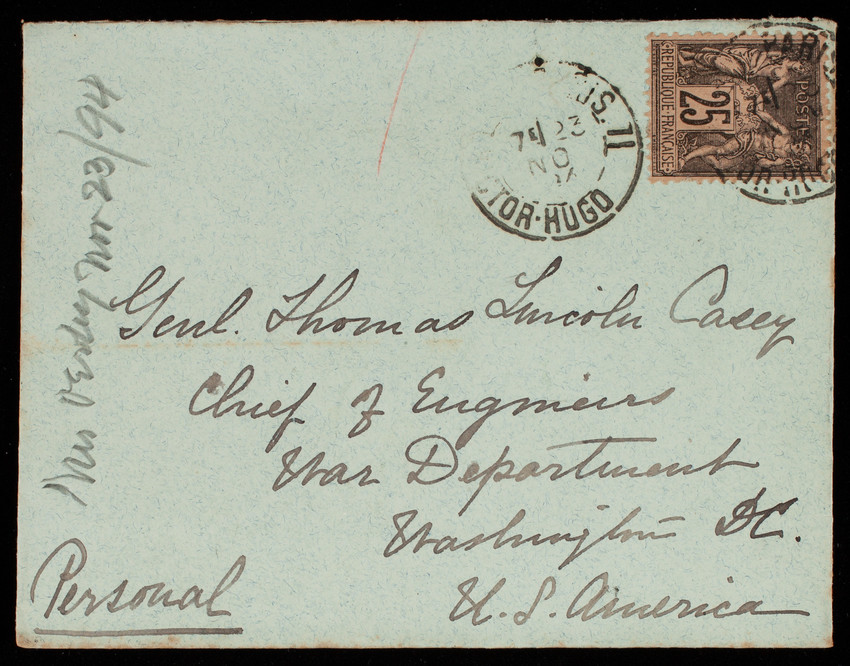 PARIS. 11
7E 23
NO
94
CTOR-HUGO
PARIS
REPUBLIQUE FRANÇAISE
25
POSTES
Genl. Thomas Lincoln Casey
Chief of Engineers
War Department
Washington DC.
U.S. America
Personal
Nov 23/94